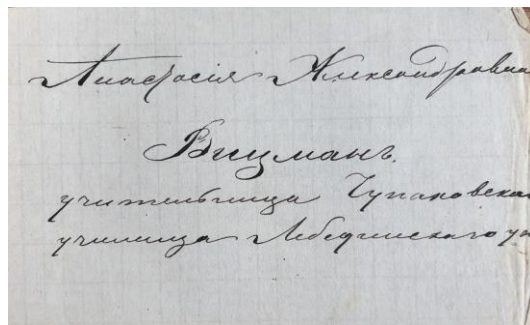 Анастасія Александровна
Вицманъ.
учительница Чупаховска
училища Лебединскаго у